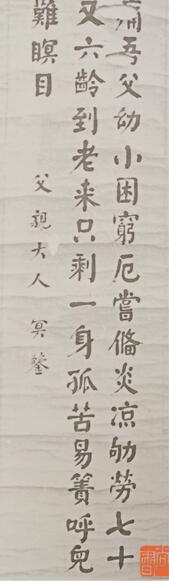 痛吾父幼小困窮厄嘗俻炎凉劬勞七十
又六齡到老来只剩一身孤苦易簀呼兒
難瞑目
父親大人 冥鑒